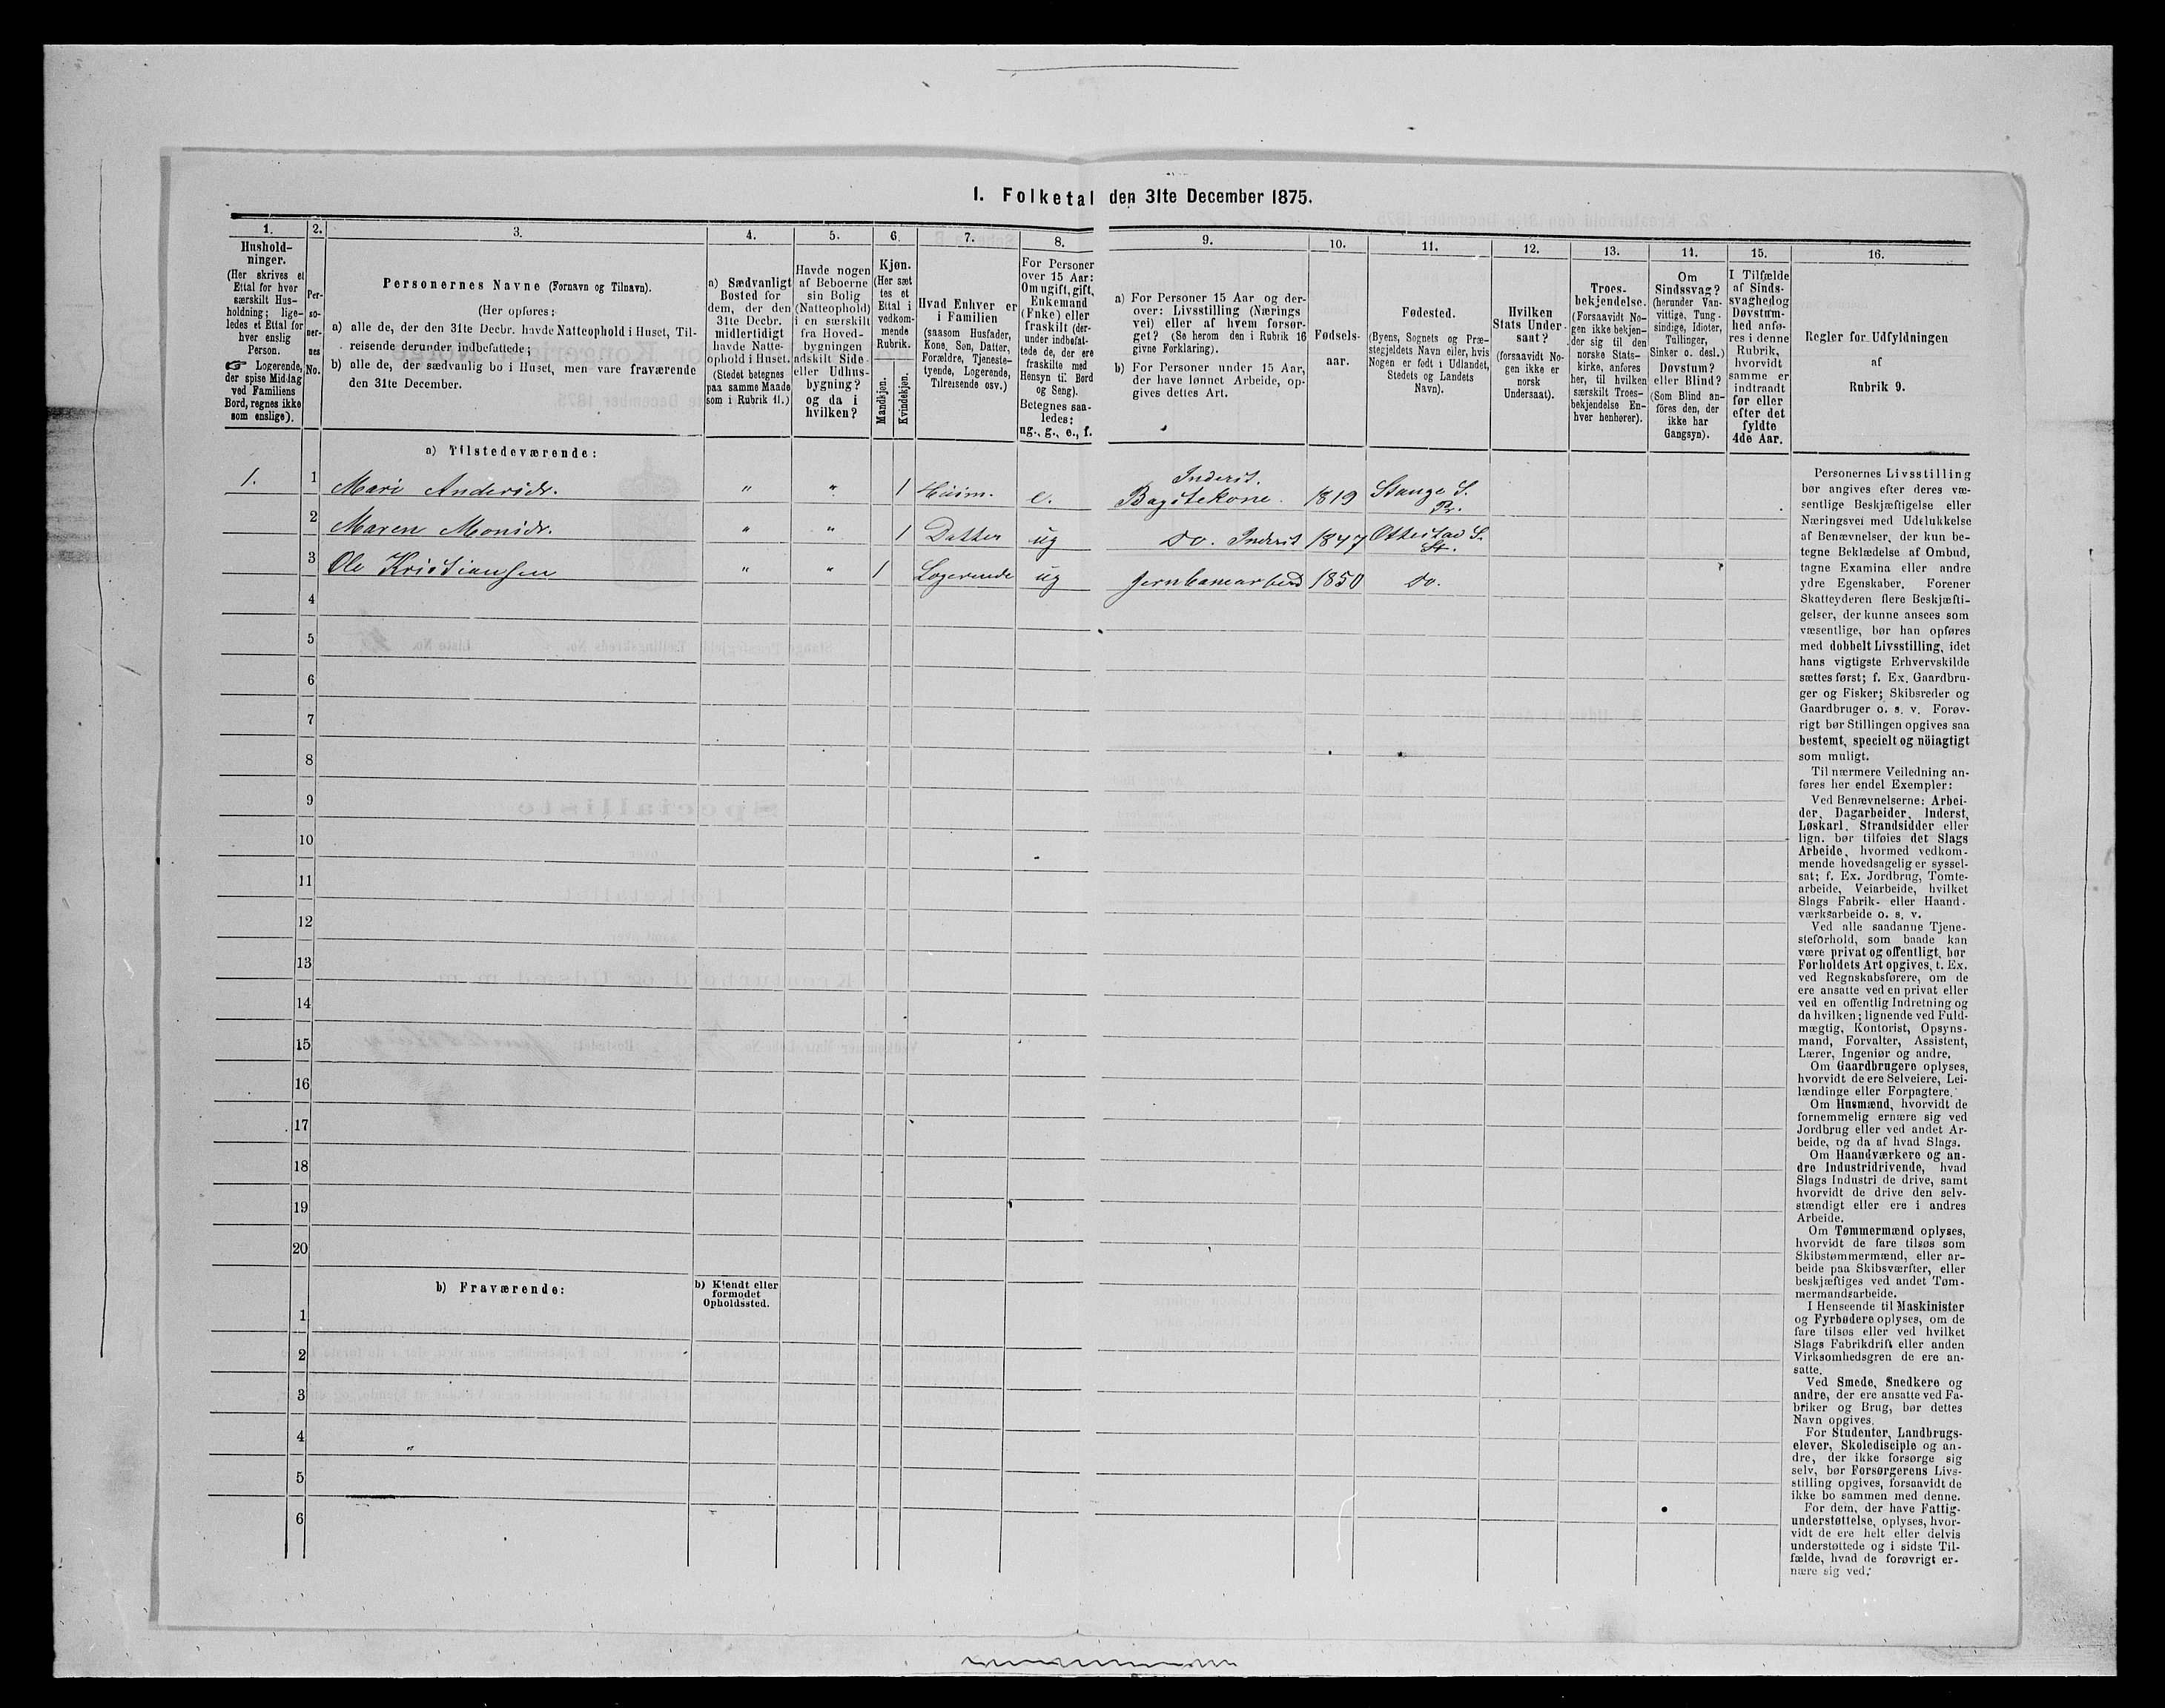 I. Folketal den 31te December 1875.
1.
2.
3.
4.
5.
6.
7.
8.
9.
10.
11.
12.
13.
14.
15.
16.
Hushold-
ninger.
(Her skrives et
Ettal for hver
særskilt Hus-
holdning; lige-
ledes et Ettal for
hver enslig
Person.
☞ Logerende,
der spise Middag
ved Familiens
Bord, regnes ikke
som enslige).
Per-
so-
ner-
nes
No.
Personernes Navne (Fornavn og Tilnavn).
(Her opføres:
a) alle de, der den 31te Decbr. havde Natteophold i Huset, Til-
reisende derunder indbefattede;
b) alle de, der sædvanlig bo i Huset, men vare fraværende
den 31te December.
a) Sædvanligt
Bosted for
dem, der den
31te Decbr.
midlertidigt
havde Natte-
ophold i Huset.
(Stedet betegnes
paa samme Maade
som i Rubrik 11.)
Havde nogen
af Beboerne
sin Bolig
(Natteophold)
i en særskilt
fra Hoved-
bygningen
adskilt Side-
eller Udhus-
bygning?
og da i
hvilken?
Kjøn.
(Her sæt-
tes et
Ettal i
vedkom-
mende
Rubrik.
Mandkjøn.
Kvindekjøn.
Hvad Enhver er
i Familien
(saasom Husfader,
Kone, Søn, Datter,
Forældre, Tjeneste-
tyende, Logerende,
Tilreisende osv.)
For Personer
over 15 Aar:
Om ugift, gift,
Enkemand
(Enke) eller
fraskilt (der-
under indbefat-
tede de, der ere
fraskilte med
Hensyn til Bord
og Seng).
Betegnes saa-
ledes:
ug., g., e., f.
a) For Personer 15 Aar og der-
over: Livsstilling (Nærings
vei) eller af hvem forsør-
get? (Se herom den i Rubrik 16
givne Forklaring).
b) For Personer under 15 Aar,
der have lønnet Arbeide, op-
gives dettes Art.
Fødsels-
aar.
Fødested.
(Byens, Sognets og Præ-
stegjeldets Navn eller, hvis
Nogen er født i Udlandet,
Stedets og Landets
Navn).
Hvilken
Stats Under-
saat?
(forsaavidt No-
gen ikke er
norsk
Undersaat).
Troes-
bekjendelse.
(Forsaavidt No-
gen ikke bekjen-
der sig til den
norske Stats-
kirke, anføres
her, til hvilken
særskilt Troes-
bekjendelse En-
hver henhører).
Om
Sindssvag?
(herunder Van-
vittige, Tung-
sindige, Idioter,
Tullinger,
Sinker o. desl.)
Døvstum?
eller Blind?
(Som Blind an-
föres den, der
ikke har
Gangsyn).
I Tilfælde
af Sinds-
svaghed og
Døvstum-
hed anfø-
res i denne
Rubrik,
hvorvidt
samme er
indtraadt
før eller
efter det
fyldte
4de Aar.
Regler for Udfyldningen
af
Rubrik 9.
a) Tilstedeværende:
1. 1 Mari Andersdr. " " 1 Husm. e. Inderst. Bagstekone. 1819 Stange S. Pr.
2 Maren Monsdr. " " 1 Datter ug do. Inderst 1847 Ottestad S. St.
3 Ole Kristiansen " " 1 Logerende ug Jernbanearbeid 1850 do.
4
5
6
7
8
9
10
11
12
13
14
15
16
17
18
19
20
b) Fraværende:
b) Kjendt eller
formodet
Opholdssted.
1
2
3
4
5
6
Personernes Livsstilling
bør angives efter deres væ-
sentlige Beskjæftigelse eller
Næringsvei med Udelukkelse
af Benævnelser, der kun be-
tegne Beklædelse af Ombud,
tagne Examina eller andre
ydre Egenskaber. Forener
Skatteyderen flere Beskjæfti-
gelser, der kunne ansees som
væsentlige, bør han opføres
med dobbelt Livsstilling, idet
hans vigtigste Erhvervskilde
sættes først; f. Ex. Gaardbru-
ger og Fisker; Skibsreder og
Gaardbruger o. s. v. Forøv-
rigt bør Stillingen opgives saa
bestemt, specielt og nöiagtigt
som muligt.
Til nærmere Veiledning an-
føres her endel Exempler:
Ved Benævnelserne: Arbei-
der, Dagarbeider, Inderst,
Løskarl, Strandsidder eller
lign. bør tilføies det Slags
Arbeide, hvormed vedkom-
mende hovedsagelig er syssel-
sat; f. Ex. Jordbrug, Tomte-
arbeide, Veiarbeide, hvilket
Slags Fabrik- eller Haand-
værksarbeide o. s. v.
Ved alle saadanne Tjene-
steforhold, som baade kan
være privat og offentligt, bør
Forholdets Art opgives, t. Ex.
ved Regnskabsførere, om de
ere ansatte ved en privat eller
ved en offentlig Indretning og
da hvilken; lignende ved Fuld-
mægtig, Kontorist, Opsyns-
mand, Forvalter, Assistent,
Lærer, Ingeniør og andre.
Om Gaardbrugere oplyses,
hvorvidt de ere Selveiere, Lei-
lændinge eller Forpagtere.
Om Husmænd, hvorvidt de
fornemmelig ernære sig ved
Jordbrug eller ved andet Ar-
beide, og da af hvad Slags.
Om Haandværkere og an-
dre Industridrivende, hvad
Slags Industri de drive, samt
hvorvidt de drive den selv-
stændigt eller ere i andres
Arbeide.
Om Tømmermænd oplyses,
hvorvidt de fare tilsøs som
Skibstømmermænd, eller ar-
beide paa Skibsværfter, eller
beskjæftiges ved andet Tøm-
mermandsarbeide.
I Henseende til Maskinister
og Fyrbødere oplyses, om de
fare tilsøs eller ved hvilket
Slags Fabrikdrift eller anden
Virksomhedsgren de ere an-
satte.
Ved Smede, Snedkere og
andre, der ere ansatte ved Fa-
briker og Brug, bør dettes
Navn opgives.
For Studenter, Landbrugs-
elever, Skoledisciple og an-
dre, der ikke forsørge sig
selv, bør Forsørgerens Livs-
stilling opgives, forsaavidt de
ikke bo sammen med denne.
For dem, der have Fattig-
understøttelse, oplyses, hvor-
vidt de ere helt eller delvis
understøttede og i sidste Til-
fælde, hvad de forøvrigt er-
nære sig ved.